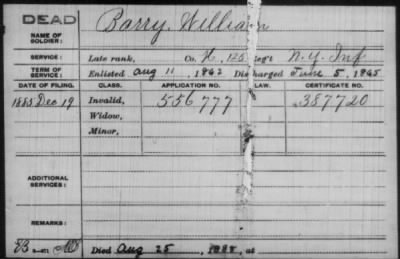 DEAD
NAME OF SOLDIER: Barry, William
SERVICE: Late rank, Co. H, 125 Reg't N.Y. Inf
TERM OF SERVICE: Enlisted Aug 11, 1862 Discharged June 5, 1865
DATE OF FILING. CLASS. APPLICATION NO. LAW. CERTIFICATE NO.
1885 Dec 19 Invalid, 556777 387720
Widow,
Minor,
ADDITIONAL SERVICES:
REMARKS:
Died Aug 25, at